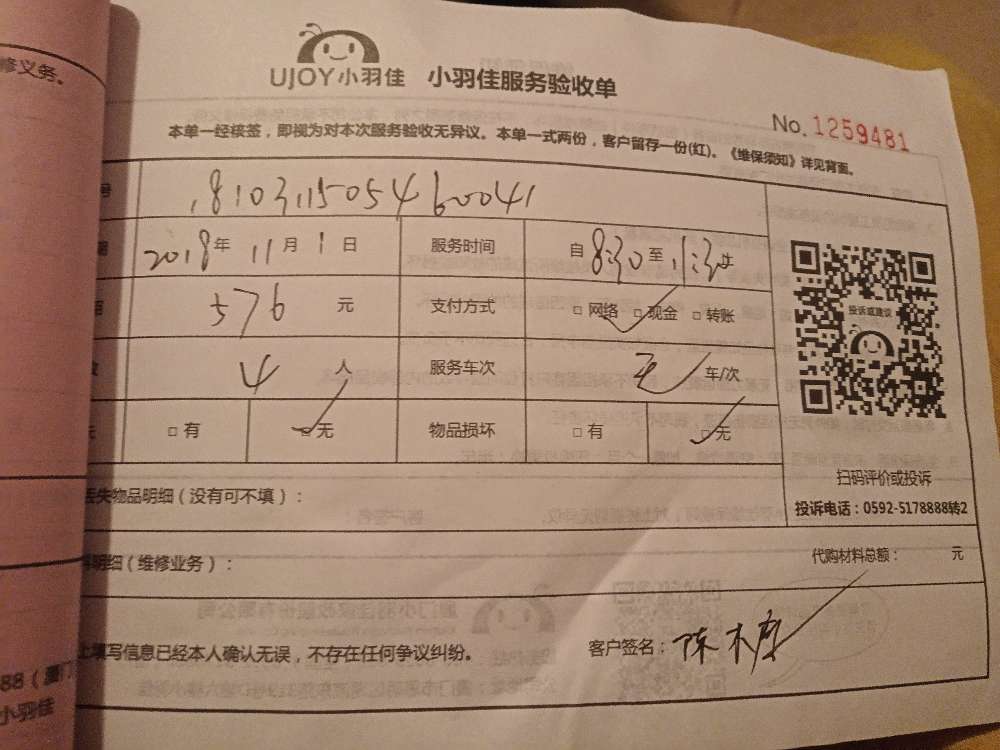 修义务。
UJOY小羽佳 小羽佳服务验收单
No. 1259481
本单一经核签，即视为对本次服务验收无异议。本单一式两份，客户留存一份(红)。《维保须知》详见背面。
号 1810311505460041
期 2018年11月1日 服务时间 自8:30至11:30止
576 元 支付方式 □网络 □现金 □转账
4 人 服务车次 无 车/次
□有 □无 物品损坏 □有 □无
投诉或建议
扫码评价或投诉
投诉电话：0592-5178888转2
丢失物品明细（没有可不填）：
料明细（维修业务）： 代购材料总额： 元
上填写信息已经本人确认无误，不存在任何争议纠纷。 客户签名：陈木
88（厦门
小羽佳